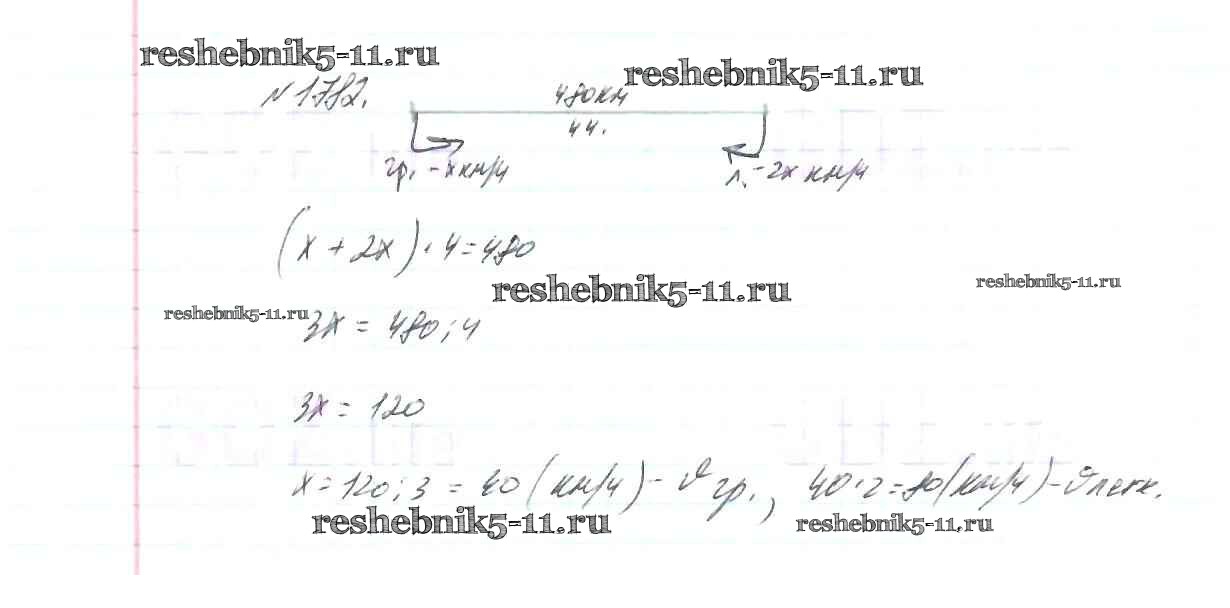 reshebnik5-11.ru
reshebnik5-11.ru
№ 1782.
480 км
4 ч.
гр. - х км/ч
л. - 2х км/ч
(х + 2х) · 4 = 480
reshebnik5-11.ru
reshebnik5-11.ru
reshebnik5-11.ru
3х = 480 : 4
3х = 120
х = 120 : 3 = 40 (км/ч) - υ гр., 40 · 2 = 80 (км/ч) - υ легк.
reshebnik5-11.ru
reshebnik5-11.ru